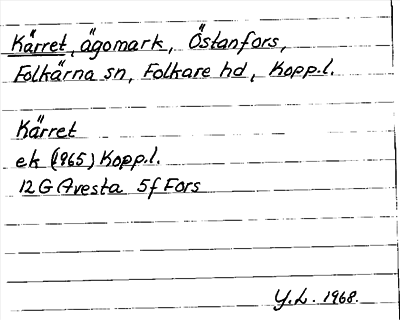 Kärret, ägomark, Östanfors,
Folkärna sn, Folkare hd, Kopp.l.
Kärret
ek (1965) Kopp.l.
12 G Avesta 5f Fors
Y.L. 1968.